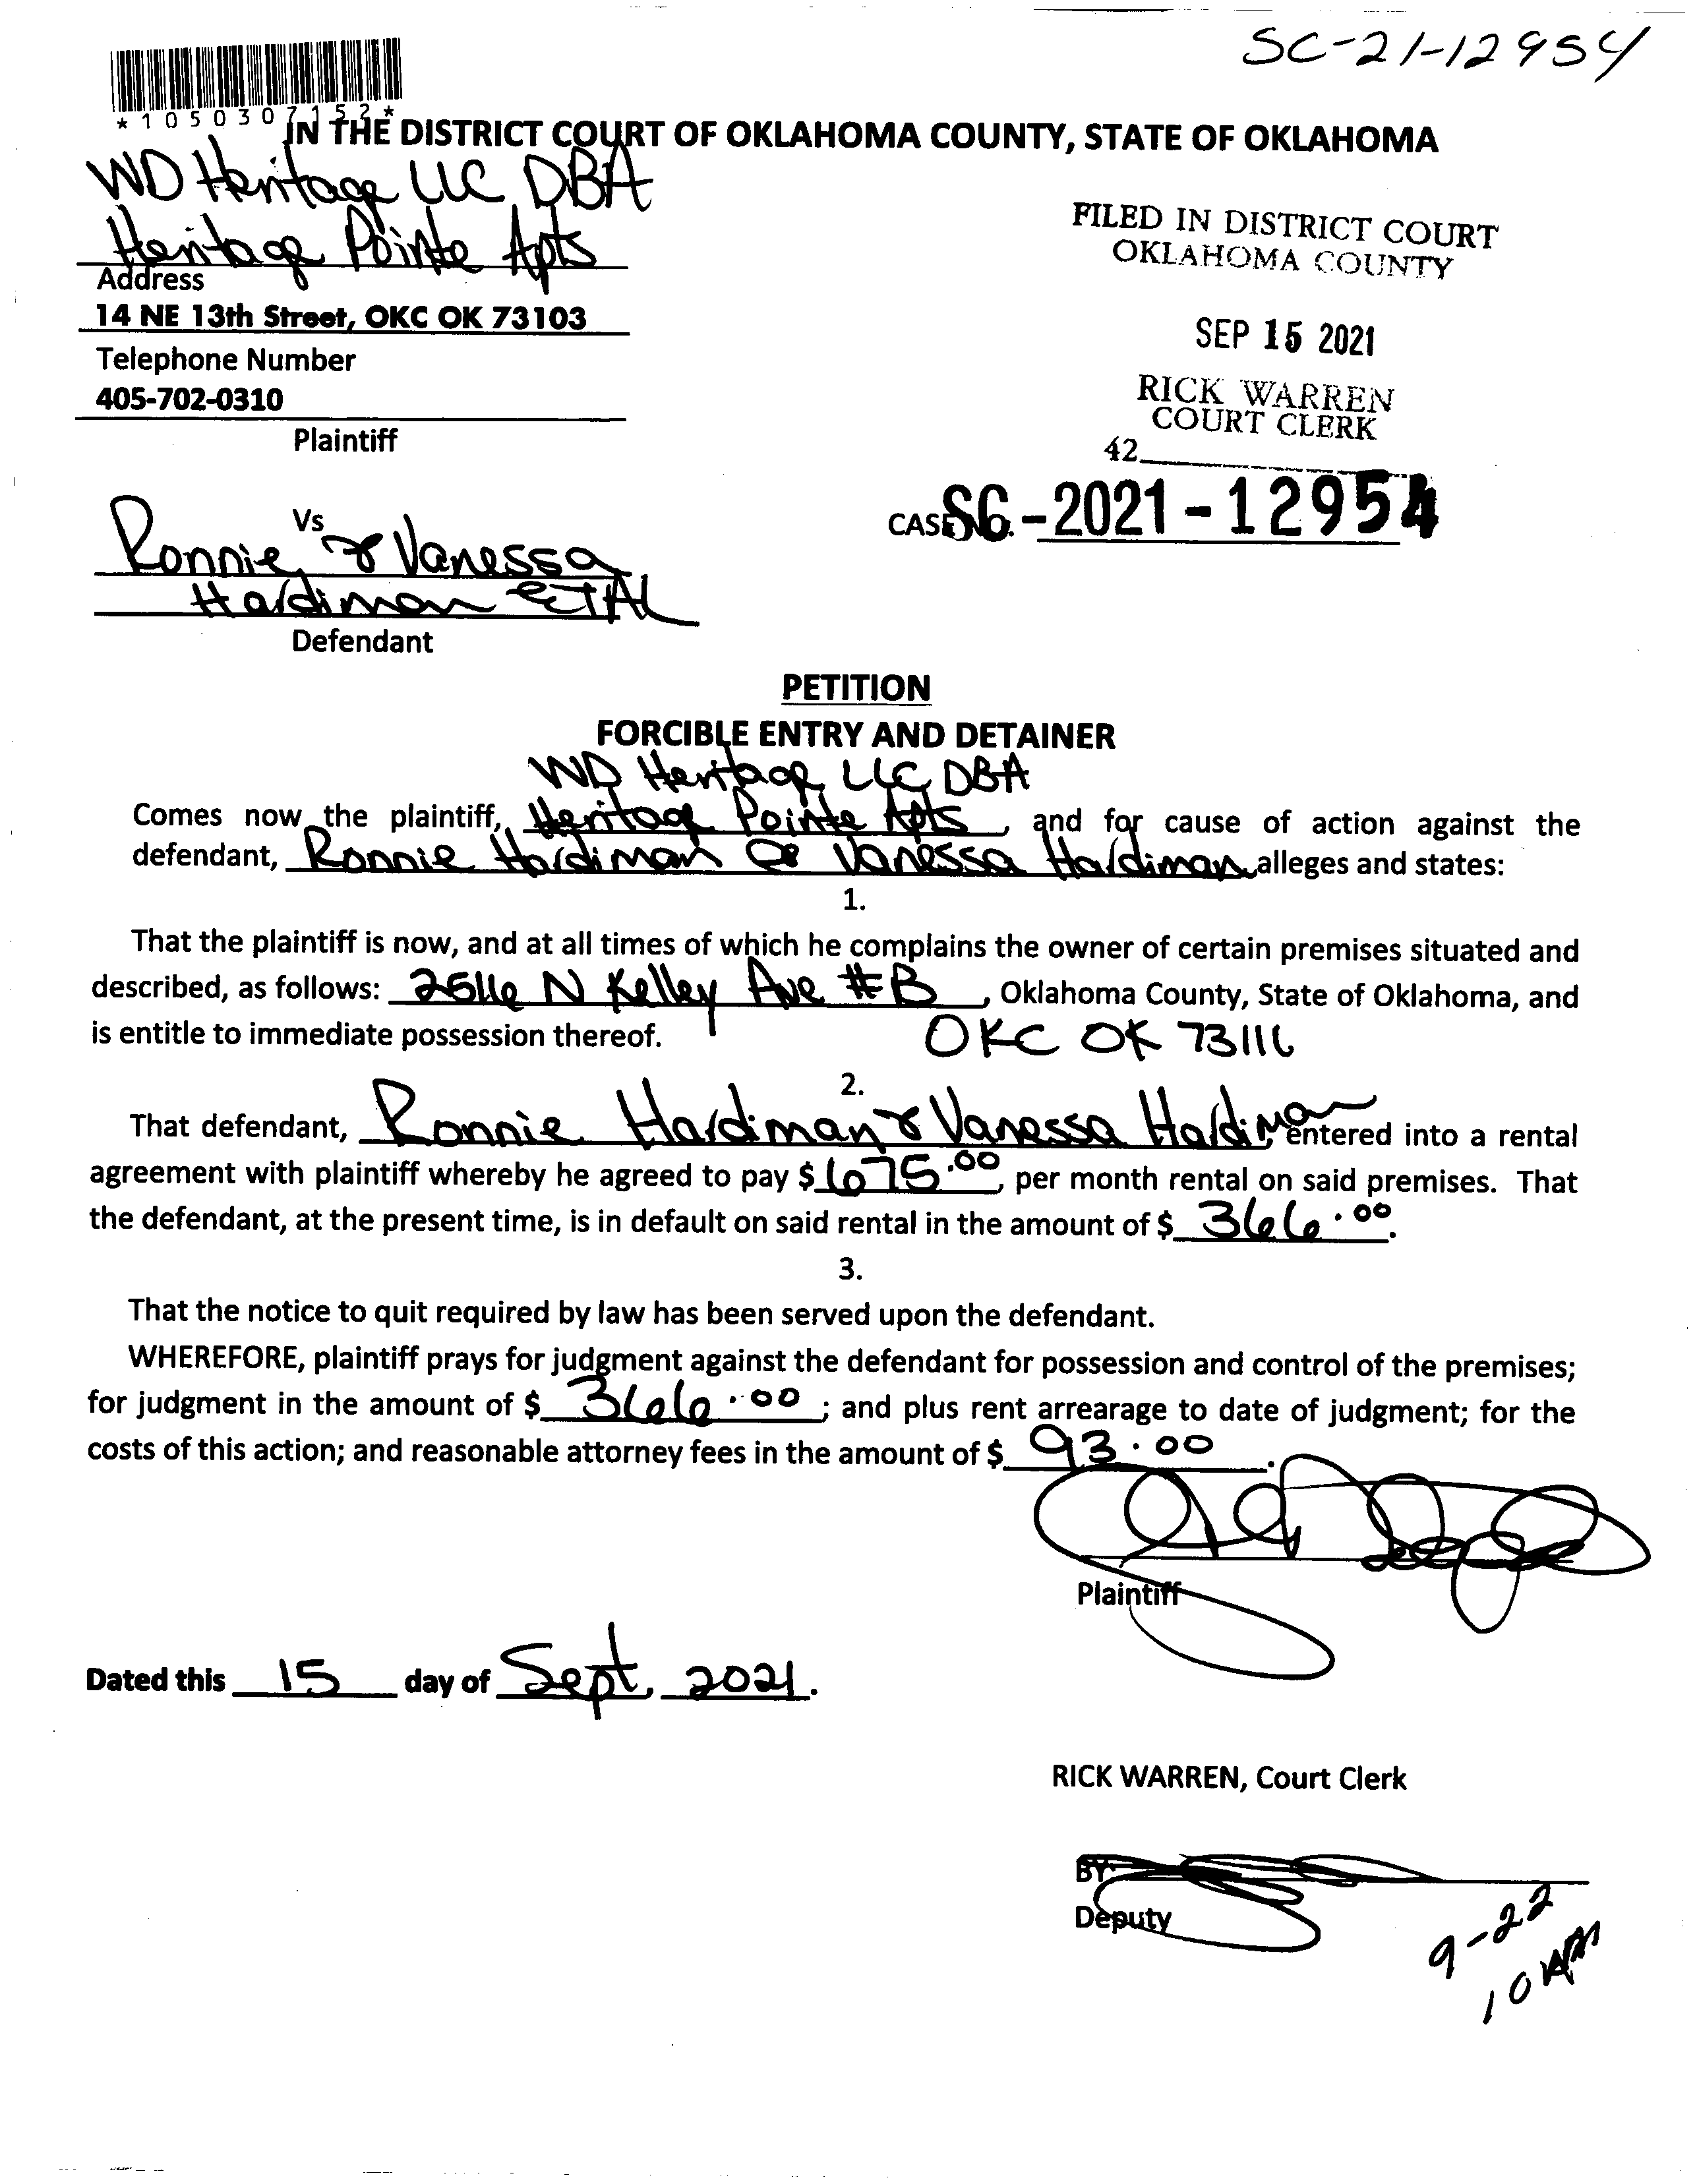 SC-21-12954
*1050307152*
IN THE DISTRICT COURT OF OKLAHOMA COUNTY, STATE OF OKLAHOMA
WD Heritage LLC DBA
Heritage Pointe Apts
Address
14 NE 13th Street, OKC OK 73103
Telephone Number
405-702-0310
Plaintiff
FILED IN DISTRICT COURT
OKLAHOMA COUNTY
SEP 15 2021
RICK WARREN
COURT CLERK
42
CASE NO. SC-2021-12954
Vs
Ronnie & Vanessa
Hardiman ETAL
Defendant
PETITION
FORCIBLE ENTRY AND DETAINER
WD Heritage LLC DBA
Comes now the plaintiff, Heritage Pointe Apts, and for cause of action against the
defendant, Ronnie Hardiman & Vanessa Hardiman alleges and states:
1.
That the plaintiff is now, and at all times of which he complains the owner of certain premises situated and
described, as follows: 2516 N Kelley Ave #B, Oklahoma County, State of Oklahoma, and
is entitle to immediate possession thereof. OKC OK 73111
2.
That defendant, Ronnie Hardiman & Vanessa Hardiman entered into a rental
agreement with plaintiff whereby he agreed to pay $ 675.00, per month rental on said premises. That
the defendant, at the present time, is in default on said rental in the amount of $ 366.00.
3.
That the notice to quit required by law has been served upon the defendant.
WHEREFORE, plaintiff prays for judgment against the defendant for possession and control of the premises;
for judgment in the amount of $ 366.00; and plus rent arrearage to date of judgment; for the
costs of this action; and reasonable attorney fees in the amount of $ 93.00.
Plaintiff
Dated this 15 day of Sept, 2021.
RICK WARREN, Court Clerk
BY:
Deputy
9-22
10 AM